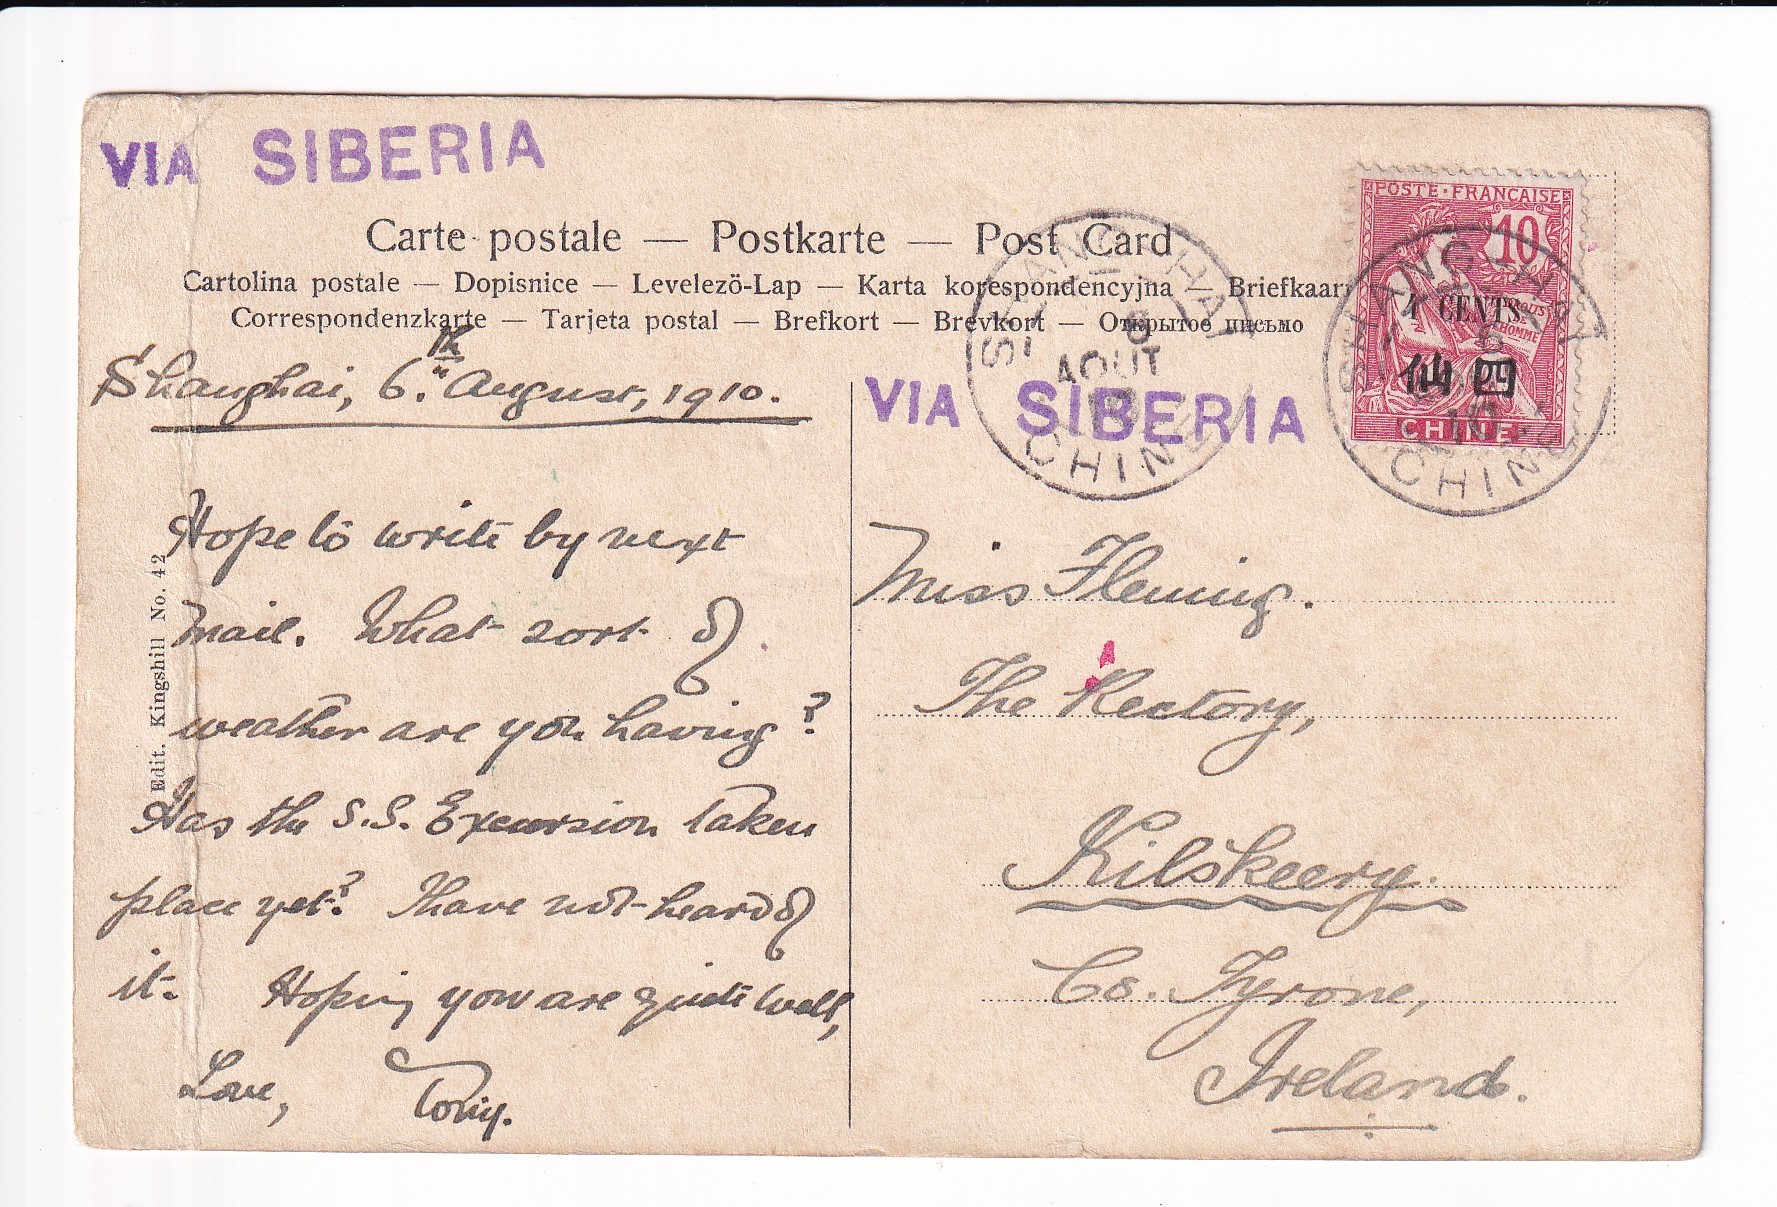 VIA SIBERIA
Carte postale — Postkarte — Post Card
Cartolina postale — Dopisnice — Levelezö-Lap — Karta korespondencyjna — Briefkaart
Correspondenzkarte — Tarjeta postal — Brefkort — Brevkort — Открытое письмо
POSTE·FRANÇAISE
10
4 CENTS
DROITS
DE
L'HOMME
仙四
CHINE
SHANG-HAI
6
AOUT
10
CHINE
SHANG-HAI
6
10
CHINE
VIA SIBERIA
Shanghai, 6th August, 1910.
Hope to write by next
mail. What sort of
weather are you having?
Has the S.S. Excursion taken
place yet? I have not heard of
it. Hoping you are quite well,
Love, Tony.
Edit. Kingshill No. 42
Miss Fleming.
The Rectory,
Kilskeery.
Co. Tyrone,
Ireland.